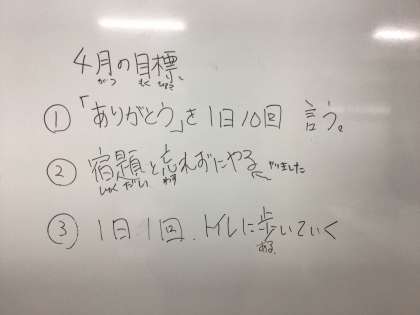 4月の目標。
がつ もくひょう
① 「ありがとう」を1日10回 言う。
② 宿題と忘れずにやる ← やりました
しゅくだい わす
③ 1日1回、トイレに歩いていく
ある